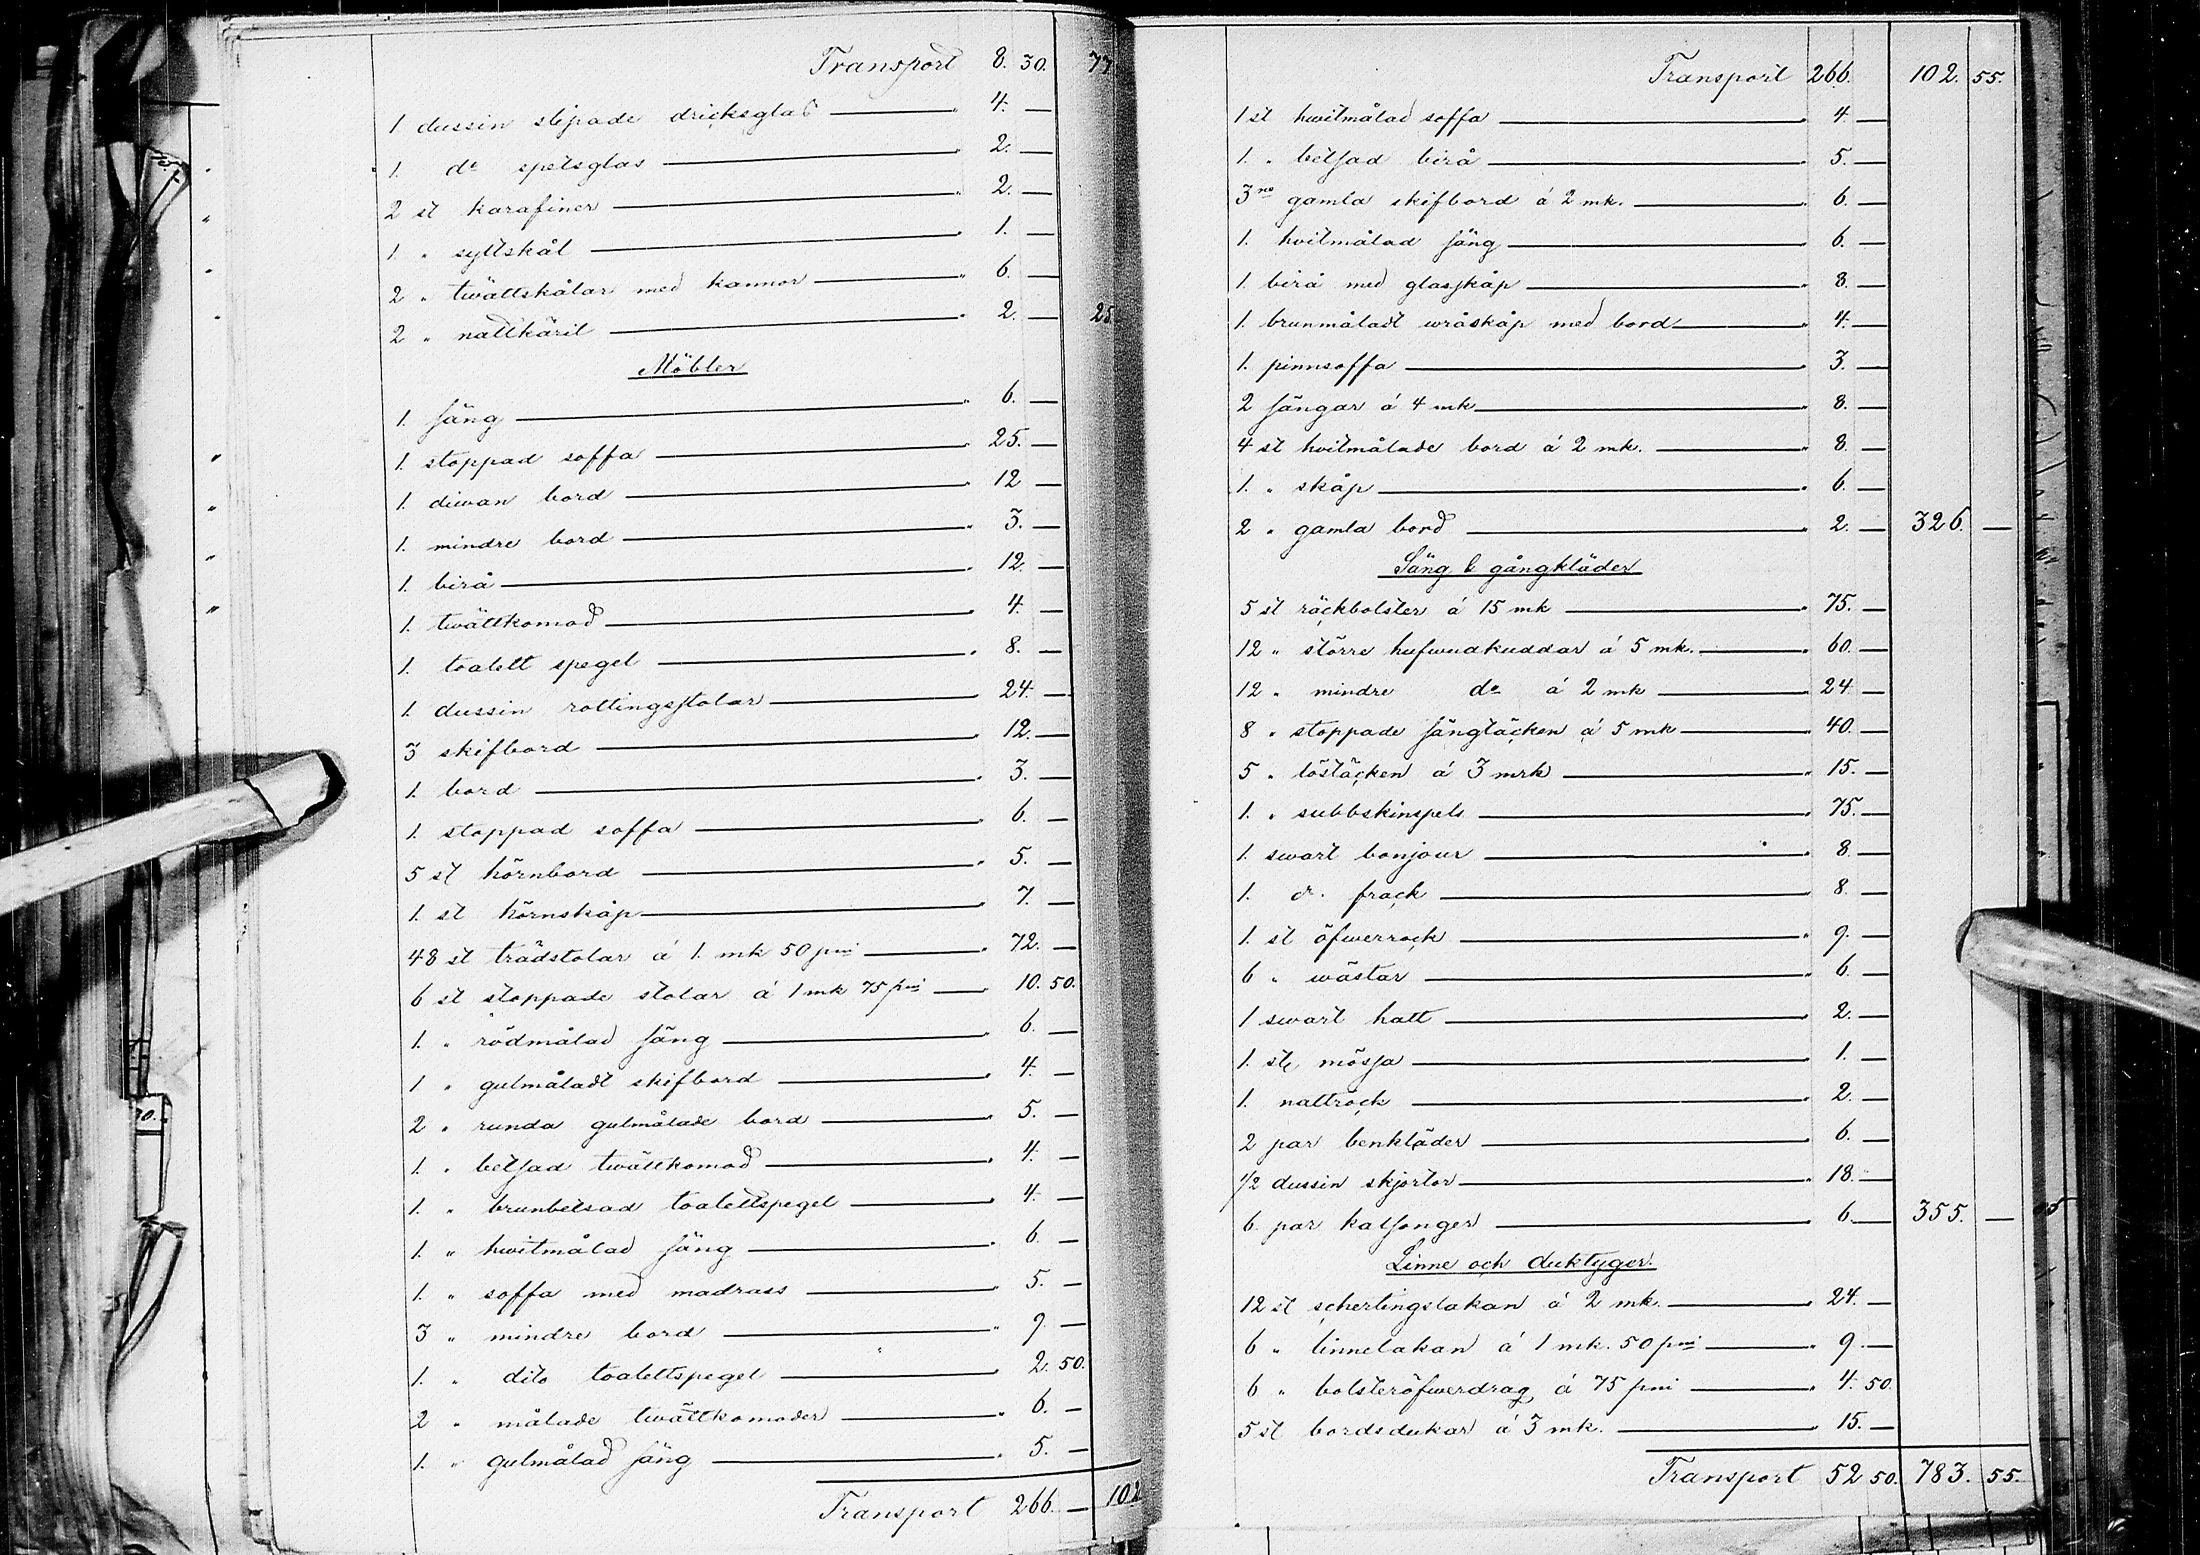 Transport 8. 30. 77
1 dussin slipade dricksglas — " 4. —
1. do spetsglas — " 2. —
2 st karafiner — " 2. —
1 " syltskål — " 1. —
2 " twättskålar med kannor — " 6. —
2 " nattkäril — " 2. — 25
Möbler
1. säng — " 6. —
1. stoppad soffa — " 25. —
1. diwan bord — " 12 —
1. mindre bord — " 3. —
1. birå — " 12. —
1. twättkomod — " 4. —
1. toalett spegel — " 8. —
1. dussin rottingsstolar — " 24. —
3 skifbord — " 12. —
1. bord — " 3. —
1. stoppad soffa — " 6. —
5 st hörnbord — " 5. —
1. st hörnskåp — " 7. —
48 st trädstolar á 1. mk 50 pni — " 72. —
6 st stoppade stolar á 1 mk 75 pni — " 10. 50.
1. " rödmålad säng — " 6. —
1 " gulmåladt skifbord — " 4. —
2 " runda gulmålade bord — " 5. —
1. " betsad twättkomod — " 4. —
1. " brunbetsad toalettspegel — " 4. —
1. " hwitmålad säng — " 6. —
1. " soffa med madrass — " 5. —
3 " mindre bord — " 9 —
1. " dito toalettspegel — " 2. 50.
2 " målade twättkomoder — " 6. —
1. " gulmålad säng — " 5. —
Transport 266. — 102
Transport 266. 102. 55.
1 st hwitmålad soffa — " 4. —
1. " betsad birå — " 5. —
3ne gamla skifbord á 2 mk. — " 6. —
1. hvitmålad säng — " 6. —
1. birå med glasskåp — " 8. —
1. brunmåladt wråskåp med bord — " 4. —
1. pinnsoffa — " 3. —
2 sängar á 4 mk — " 8. —
4 st hvitmålade bord á 2 mk. — " 8. —
1. " skåp — " 6. —
2 " gamla bord — " 2. — 326. —
Säng & gångkläder
5 st räckbolster á 15 mk — " 75. —
12 " större hufwudkuddar á 5 mk. — " 60. —
12 " mindre do á 2 mk — " 24 —
8 " stoppade sängtäcken á 5 mk — " 40. —
5 " löstäcken á 3 mrk — " 15. —
1. " subbskinspels — " 75. —
1. swart bonjour — " 8. —
1. d. frack — " 8. —
1. st öfwerrock — " 9. —
6 " wästar — " 6. —
1 swart hatt — " 2. —
1. st mössa — " 1. —
1. nattrock — " 2. —
2 par benkläder — " 6. —
1/2 dussin skjortor — " 18. —
6. par kalsonger — " 6. — 355. —
Linne och duktyger.
12 st schertingslakan á 2 mk. — " 24. —
6 " linnelakan á 1 mk. 50 pni — " 9. —
6 " bolsteröfwerdrag á 75 pni — " 4. 50.
5 st bordsdukar á 3 mk. — " 15. —
Transport 52 50. 783. 55.